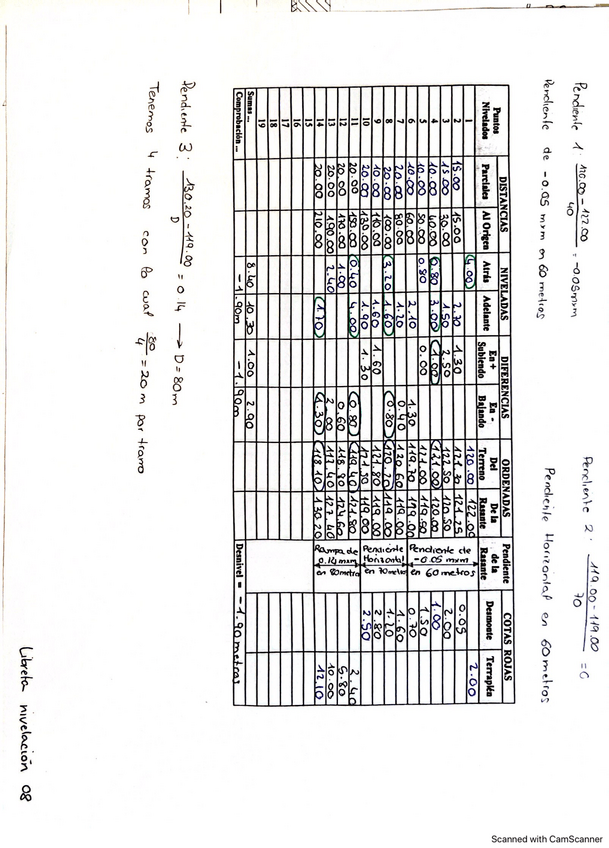 Pendiente 1: 120.00 - 122.00 / 40 = -0.05 mxm
Pendiente de -0.05 mxm en 60 metros
Pendiente 2: 119.00 - 119.00 / 70 = 0
Pendiente Horizontal en 60 metros
Puntos Nivelados | DISTANCIAS | NIVELADAS | DIFERENCIAS | ORDENADAS | Pendiente de la Rasante | COTAS ROJAS
Parciales | Al Origen | Atrás | Adelante | En + Subiendo | En - Bajando | Del Terreno | De la Rasante | Desmonte | Terraplén
1 4.00 120.00 122.00 2.00
2 15.00 15.00 2.70 1.30 121.30 121.25 0.05
3 15.00 30.00 1.50 2.50 122.50 120.50 2.00
4 10.00 40.00 0.80 3.00 1.00 121.00 120.00 1.00
5 10.00 50.00 0.80 0.00 121.00 119.50 1.50
6 10.00 60.00 2.10 1.30 119.70 119.00 0.70
7 20.00 80.00 1.20 0.40 120.60 119.00 1.60
8 20.00 100.00 3.20 1.60 0.80 120.20 119.00 1.20
9 10.00 110.00 1.60 1.60 121.80 119.00 2.80
10 20.00 130.00 1.90 1.30 121.50 119.00 2.50
11 20.00 150.00 0.40 4.00 0.80 119.40 121.80 2.40
12 20.00 170.00 1.00 0.60 118.80 124.60 5.80
13 20.00 190.00 2.40 2.00 117.40 127.40 10.00
14 20.00 210.00 1.70 1.30 118.10 130.20 12.10
15
16
17
18
19
Pendiente de -0.05 mxm en 60 metros
Pendiente Horizontal en 70 metros
Rampa de 0.14 mxm en 80 metros
Sumas... 8.40 10.30 1.00 2.90
Comprobación... -1.90m -1.90m Desnivel = -1.90 metros
Pendiente 3: 130.20 - 119.00 / D = 0.14 → D = 80 m
Tenemos 4 tramos con lo cual 80 / 4 = 20 m por tramo
Libreta nivelación 08
Scanned with CamScanner